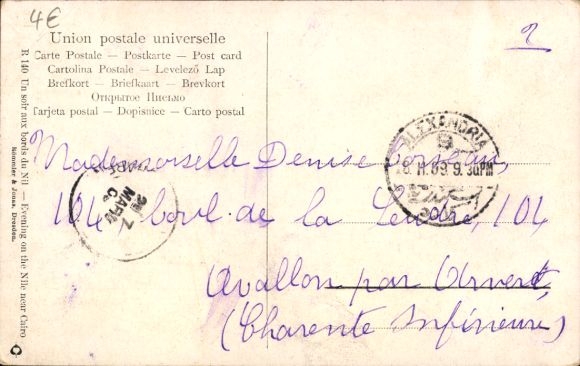 4€
Union postale universelle
Carte Postale — Postkarte — Post card
Cartolina Postale — Levelező Lap
Brefkort — Briefkaart — Brevkort
Открытое Письмо
Tarjeta postal — Dopisnice — Carto postal
R 140 Un soir aux bords du Nil — Evening on the Nile near Cairo
ALEXANDRIA
9.30PM
Mademoiselle Denise
104 boul. de la 104
Avallon par Arvert,
(Charente Inférieure)